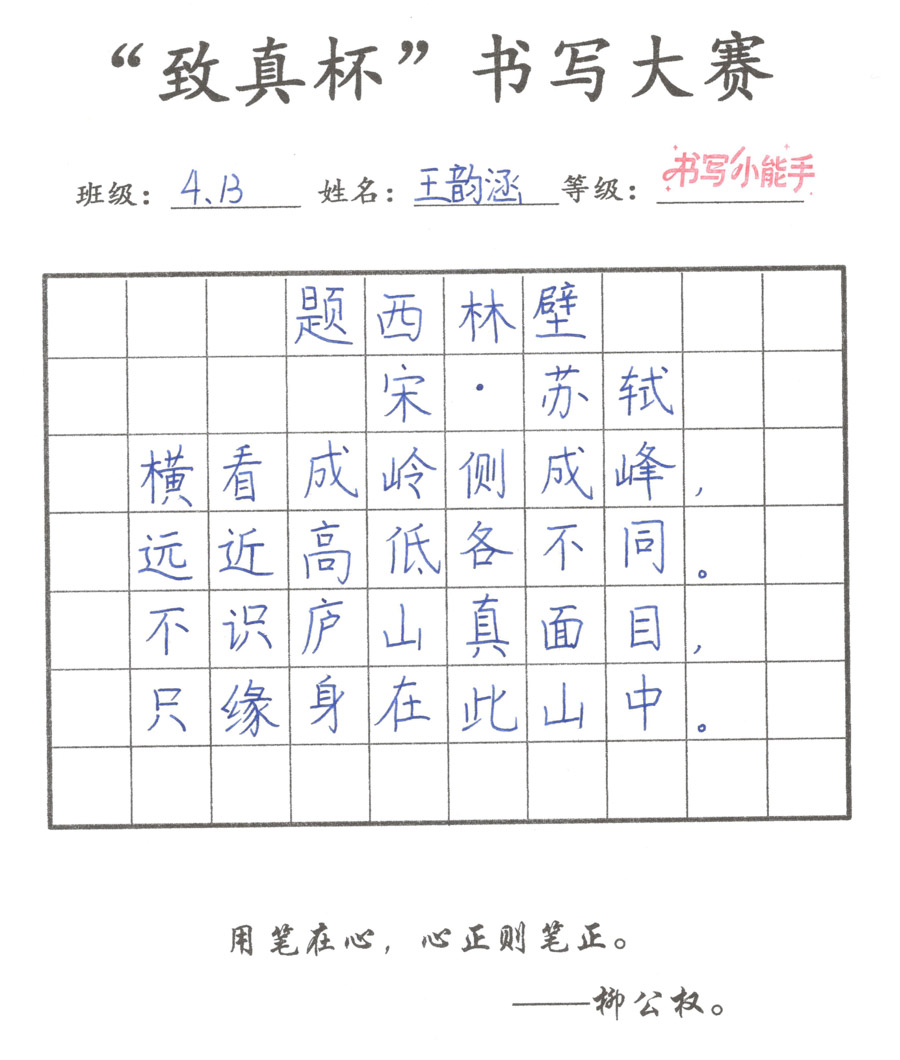 “致真杯”书写大赛
班级：4.13 姓名：王韵涵 等级：书写小能手
题西林壁
宋·苏轼
横看成岭侧成峰，
远近高低各不同。
不识庐山真面目，
只缘身在此山中。
用笔在心，心正则笔正。
——柳公权。